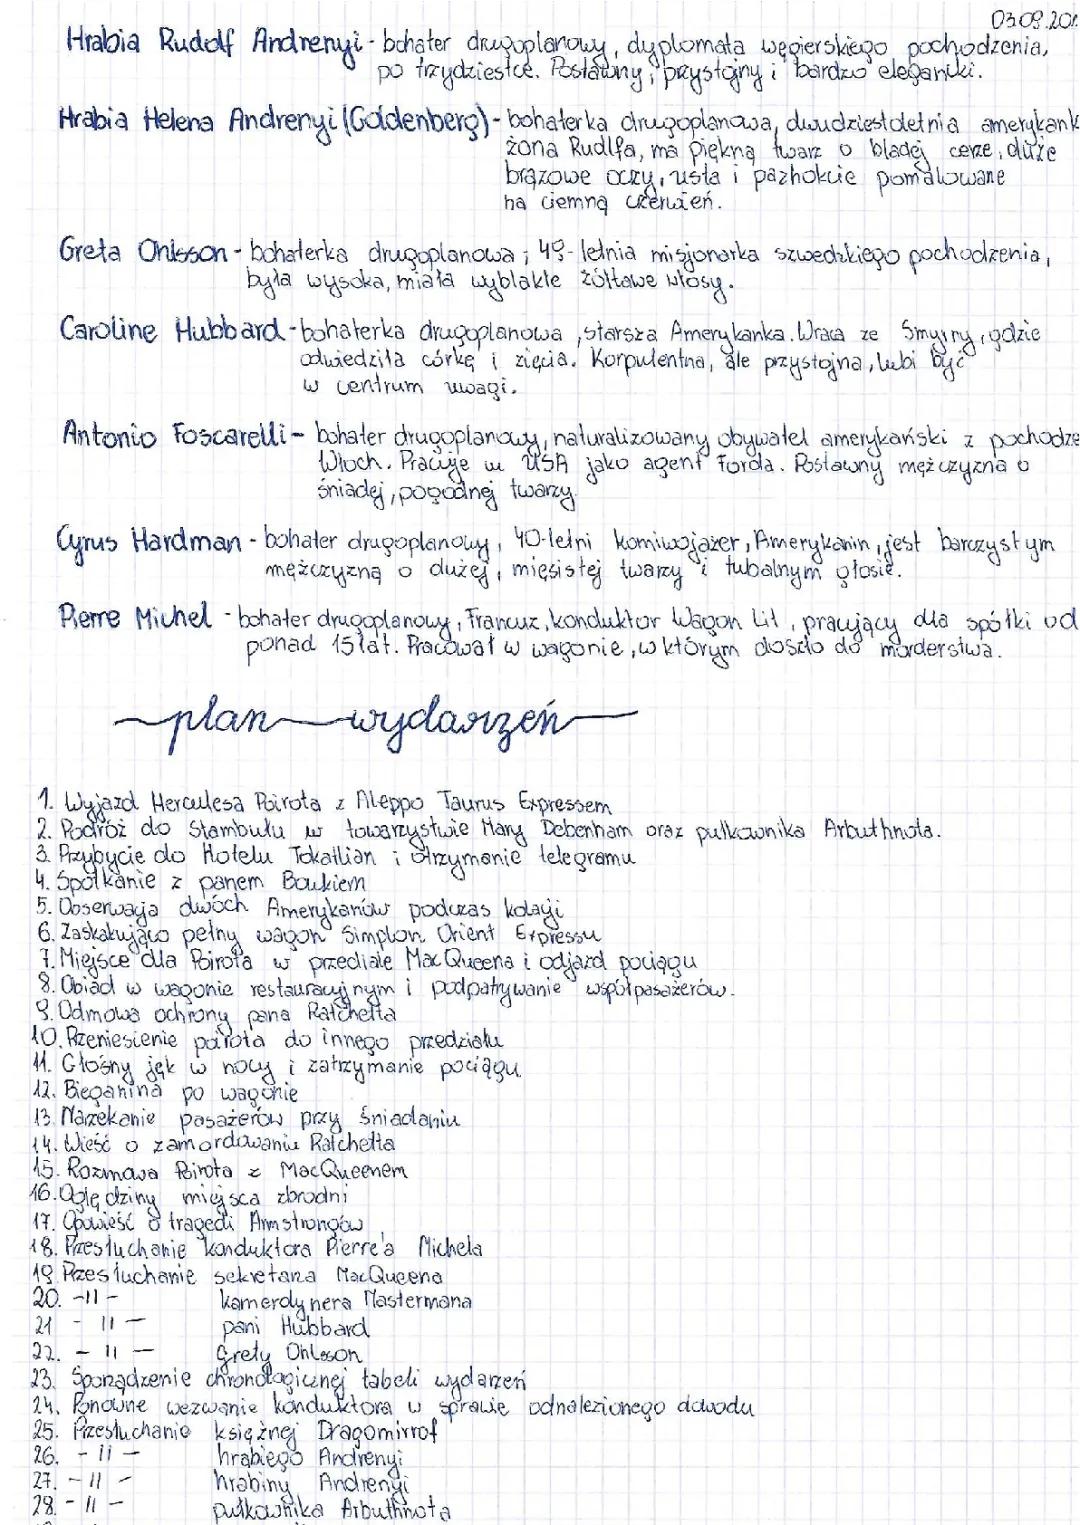 03.09.20
Hrabia Rudolf Andrenyi - bohater drugoplanowy, dyplomata węgierskiego pochodzenia,
po trzydziestce. Postawny, przystojny i bardzo elegancki.
Hrabia Helena Andrenyi (Goldenberg) - bohaterka drugoplanowa, dwudziestoletnia amerykank
żona Rudlfa, ma piękną twarz o bladej cerze, duże
brązowe oczy, usta i paznokcie pomalowane
na ciemną czerwień.
Greta Ohlsson - bohaterka drugoplanowa; 49-letnia misjonarka szwedzkiego pochodzenia,
była wysoka, miała wyblakłe żółtawe włosy.
Caroline Hubbard - bohaterka drugoplanowa, starsza Amerykanka. Wraca ze Smyrny, gdzie
odwiedziła córkę i zięcia. Korpulentna, ale przystojna, lubi być
w centrum uwagi.
Antonio Foscarelli - bohater drugoplanowy, naturalizowany obywatel amerykański z pochodze
Włoch. Pracuje w USA jako agent Forda. Postawny mężczyzna o
śniadej, pogodnej twarzy.
Cyrus Hardman - bohater drugoplanowy, 40-letni komiwojażer, Amerykanin, jest barczystym
mężczyzną o dużej, mięsistej twarzy i tubalnym głosie.
Pierre Michel - bohater drugoplanowy, Francuz, konduktor Wagon Lit, pracujący dla spółki od
ponad 15 lat. Pracował w wagonie, w którym doszło do morderstwa.
plan wydarzeń
1. Wyjazd Herculesa Poirota z Aleppo Taurus Expressem
2. Podróż do Stambułu w towarzystwie Mary Debenham oraz pułkownika Arbuthnota.
3. Przybycie do Hotelu Tokatlian i otrzymanie telegramu
4. Spotkanie z panem Boukiem
5. Obserwacja dwóch Amerykanów podczas kolacji
6. Zaskakująco pełny wagon Simplon Orient Expressu
7. Miejsce dla Poirota w przedziale MacQueena i odjazd pociągu
8. Obiad w wagonie restauracyjnym i podpatrywanie współpasażerów.
9. Odmowa ochrony pana Ratchetta
10. Przeniesienie poirota do innego przedziału
11. Głośny jęk w nocy i zatrzymanie pociągu
12. Bieganina po wagonie
13. Narzekanie pasażerów przy śniadaniu
14. Wieść o zamordowaniu Ratchetta
15. Rozmowa Poirota z MacQueenem
16. Oględziny miejsca zbrodni
17. Opowieść o tragedi Armstrongów
18. Przesłuchanie konduktora Pierre'a Michela
19. Przesłuchanie sekretarza MacQueena
20. -11- kamerdynera Mastermana
21 - 11 - pani Hubbard
22. - 11 - Grety Ohlsson
23. Sporządzenie chronologicznej tabeli wydarzeń
24. Ponowne wezwanie konduktora w sprawie odnalezionego dowodu
25. Przesłuchanie księżnej Dragomirrof
26. - 11 - hrabiego Andrenyi
27. - 11 - hrabiny Andrenyi
28. - 11 - pułkownika Arbuthnota